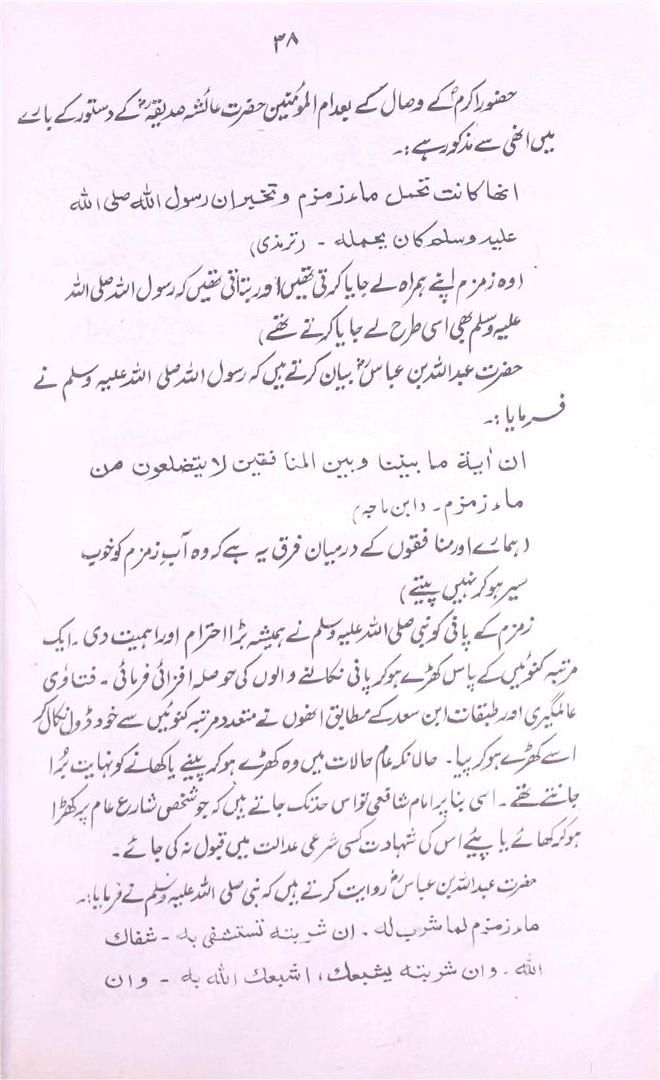 ۳۸
حضور اکرمؐ کے وصال کے بعد ام المؤمنین حضرت عائشہ صدیقہؓ کے دستور کے بارے
میں انھی سے مذکور ہے :۔
انھا کانت تحمل ماء زمزم و تخبر ان رسول اللہ صلی اللہ
علیہ وسلم کان یحملہ ۔ (ترمذی)
(وہ زمزم اپنے ہمراہ لے جایا کرتی تھیں اور بتاتی تھیں کہ رسول اللہ صلی اللہ
علیہ وسلم بھی اسی طرح لے جایا کرتے تھے)
حضرت عبداللہ بن عباسؓ بیان کرتے ہیں کہ رسول اللہ صلی اللہ علیہ وسلم نے
فرمایا :۔
ان اٰیۃ ما بیننا و بین المنافقین لا یتضلعون من
ماء زمزم ۔ (ابن ماجہ)
(ہمارے اور منافقوں کے درمیان فرق یہ ہے کہ وہ آبِ زمزم کو خوب
سیر ہو کر نہیں پیتے)
زمزم کے پانی کو نبی صلی اللہ علیہ وسلم نے ہمیشہ بڑا احترام اور اہمیت دی ۔ ایک
مرتبہ کنوئیں کے پاس کھڑے ہو کر پانی نکالنے والوں کی حوصلہ افزائی فرمائی ۔ فتاوٰی
عالمگیری اور طبقات ابن سعد کے مطابق انھوں نے متعدد مرتبہ کنوئیں سے خود ڈول نکال کر
اسے کھڑے ہو کر پیا ۔ حالانکہ عام حالات میں وہ کھڑے ہو کر پینے یا کھانے کو نہایت بُرا
جانتے تھے ۔ اسی بنا پر امام شافعی تو اس حد تک جاتے ہیں کہ جو شخص شارع عام پر کھڑا
ہو کر کھائے یا پیئے اس کی شہادت کسی شرعی عدالت میں قبول نہ کی جائے ۔
حضرت عبداللہ بن عباسؓ روایت کرتے ہیں کہ نبی صلی اللہ علیہ وسلم نے فرمایا :۔
ماء زمزم لما شرب لہ ۔ ان شربتہ تستشفی بہ ۔ شفاک
اللہ ۔ وان شربتہ یشبعک ، اشبعک اللہ بہ ۔ وان